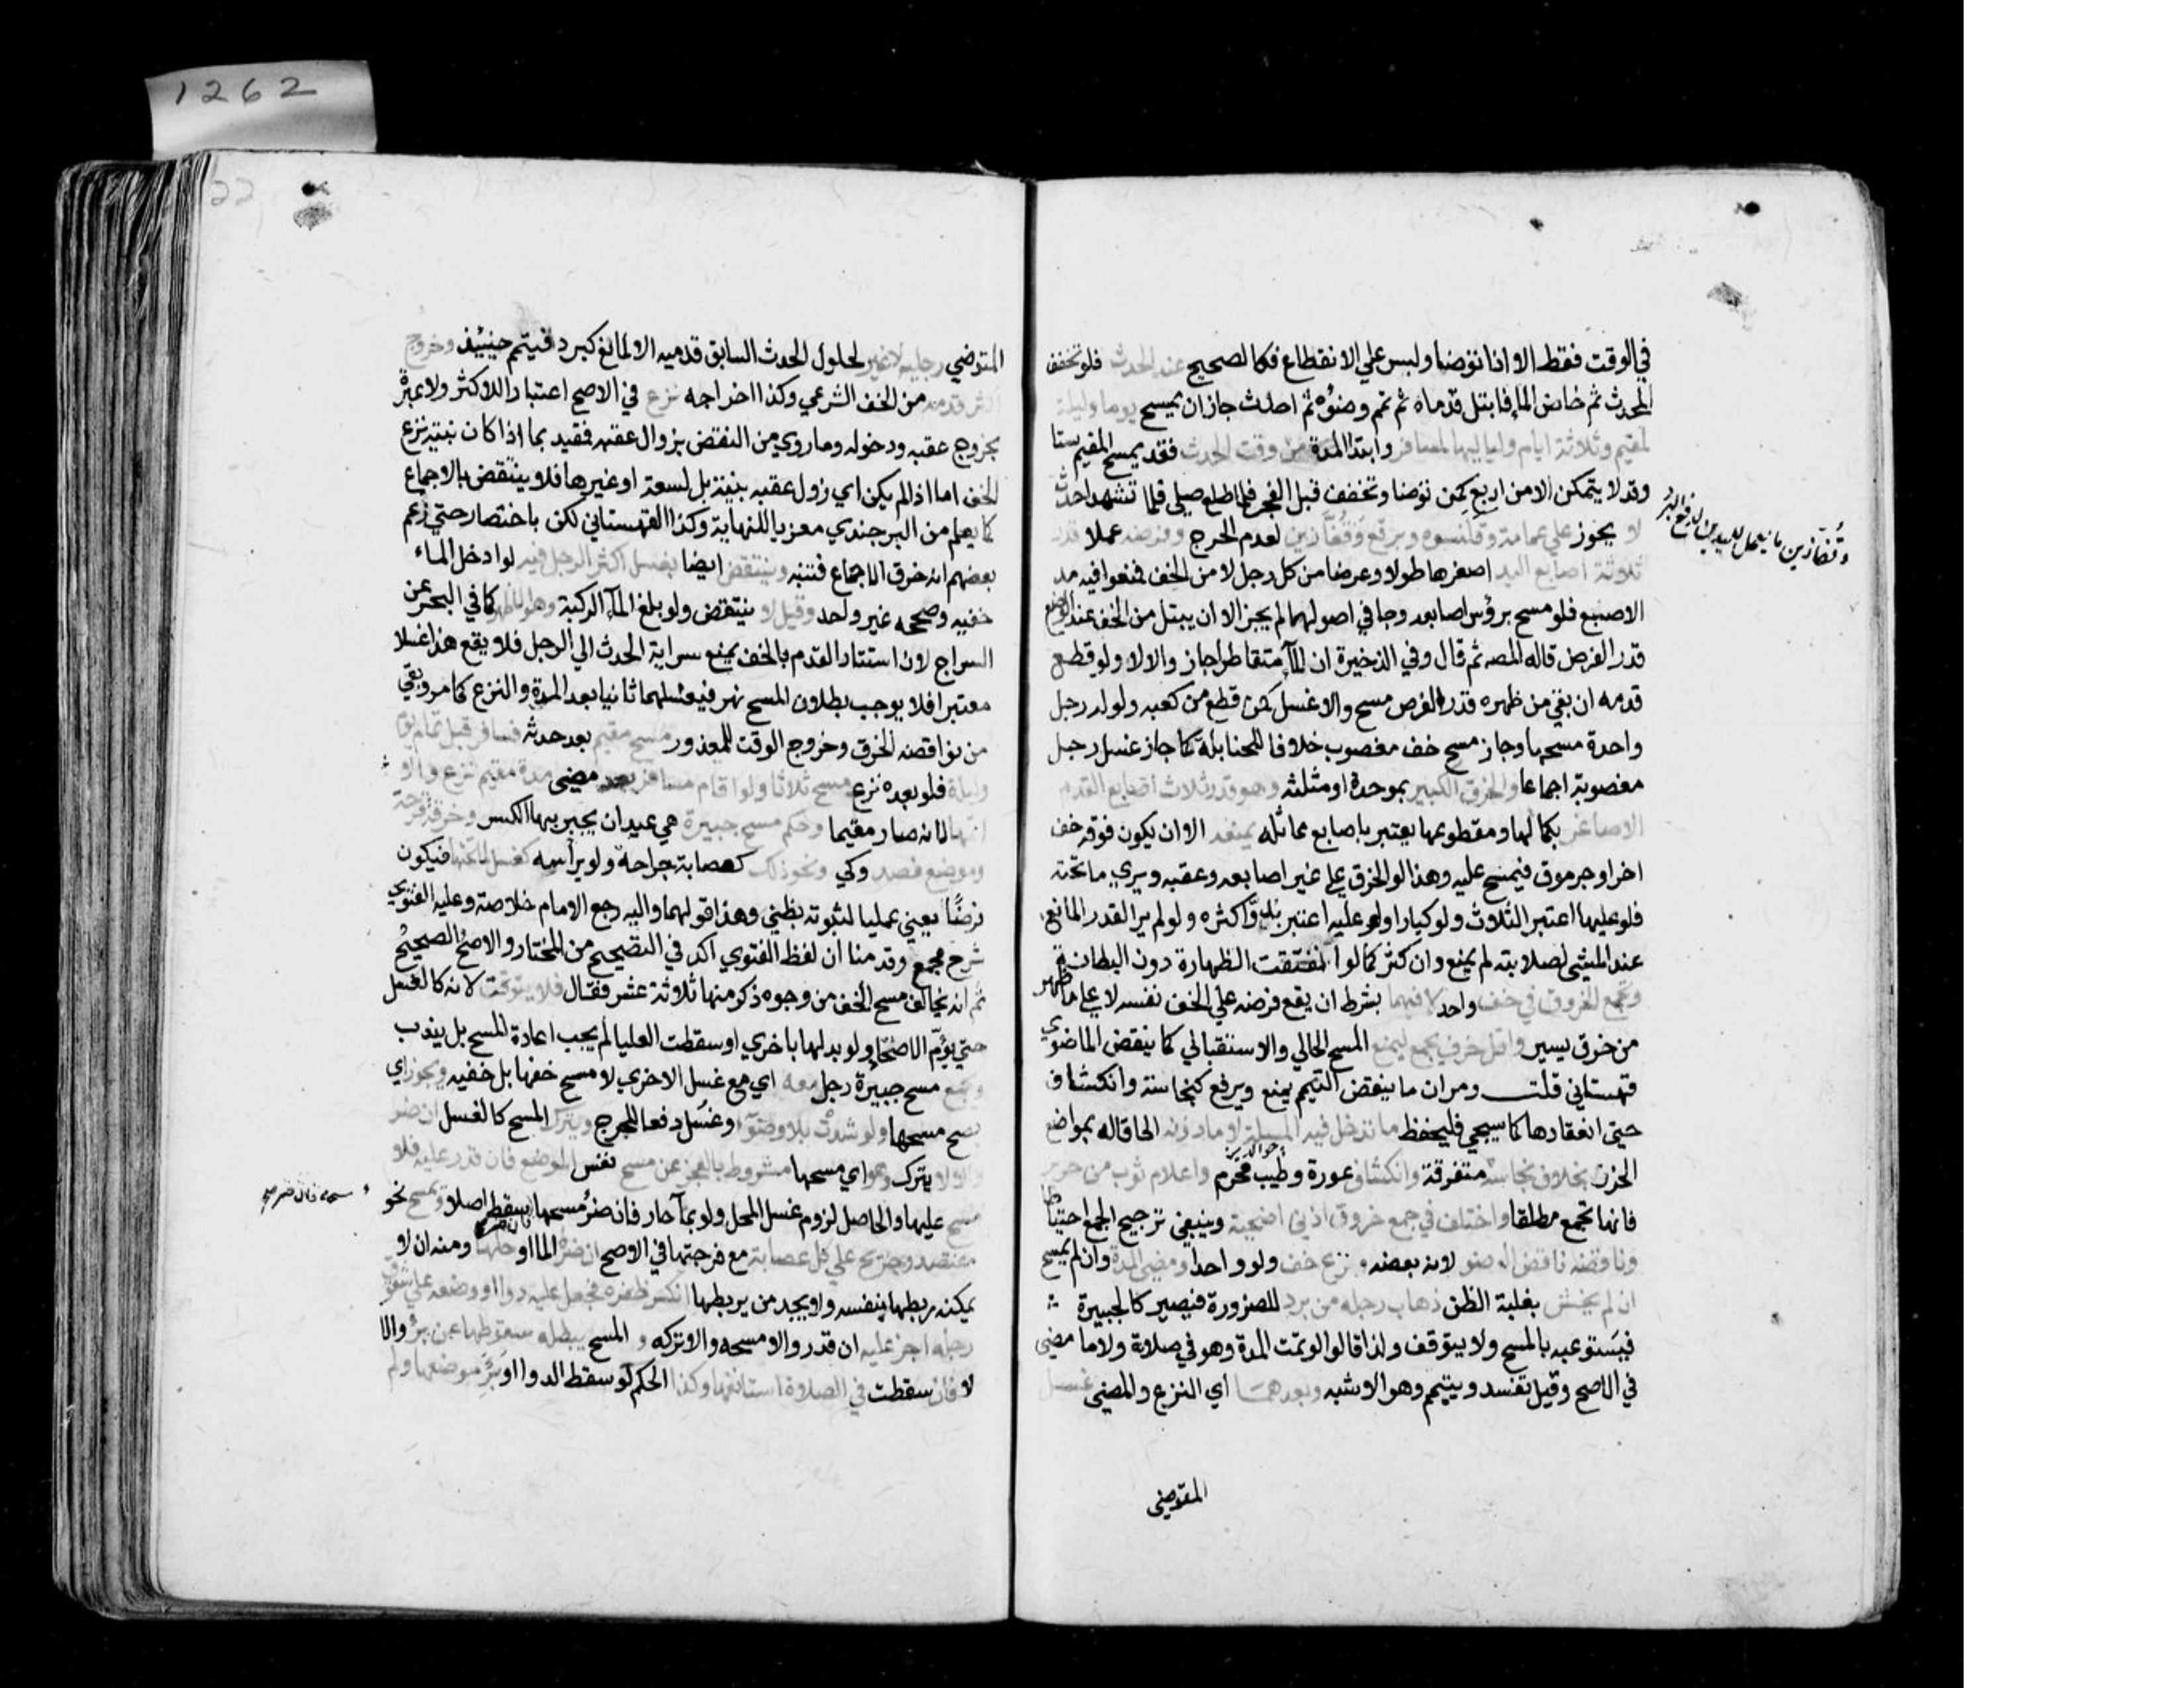 1262
في الوقت فقط الا اذا توضا ولبس علي الانقطاع فكالصحيح عند الحدث فلو تخفف
المحدث ثم خاض الما فابتل قدماه ثم تمم وضوؤه ثم احدث جاز ان يمسح يوما وليلة
لمقيم وثلاثة ايام ولياليها لمسافر وابتدا المدة من وقت الحدث فقد يمسح المقيم ستا
وقد لا يتمكن الا من اربع كمن توضا وتخفف قبل الفجر فلما طلع صلي فلما تشهد احدث
لا يجوز علي عمامة وقلنسوه وبرقع وقفازين لعدم الحرج وفرضه عملا قدر
ثلاثة اصابع اليد اصغرها طولا وعرضا من كل رجل لا من الخف فمنعوا فيه مد
الاصبع فلو مسح برؤس اصابعه وجافي اصولها لم يجز الا ان يبتل من الخف عند الوضع
قدر الفرض قاله المصه ثم قال وفي الذخيرة ان المآ متقاطرا جاز والا لا ولو قطع
قدمه ان بقي من ظهره قدر الفرض مسح والا غسل كمن قطع من كعبه ولو له رجل
واحدة مسحها وجاز مسح خف مغصوب خلافا للحنابلة كما جاز غسل رجل
مغصوبة اجماعا والخرق الكبير بموحدة او مثلثه وهو قدر ثلاث اصابع القدم
الاصاغر بكمالها ومقطوعها يعتبر باصابع مماثله يمنعه الا ان يكون فوقه خف
اخر او جرموق فيمسح عليه وهذا لو الخرق علي غير اصابعه وعقبه ويري ما تحته
فلو عليها اعتبر الثلاث ولو كبارا ولو عليه اعتبر بدو اكثره ولو لم ير القدر المانع
عند المشي لصلابته لم يمنع وان كثر كما لو انفتقت الظهارة دون البطانة
وتجمع الخروق في خف واحد لا فيهما بشرط ان يقع فرضه علي الخف نفسه لا علي ما ظهر
من خرق يسير واقل خرق يجمع ليمنع المسح الحالي والاستقبالي كما ينقض الماضوي
قهستاني قلت ومر ان ما ينقض التيمم يمنع ويرفع كنجاسة وانكشاف
حتي انعقادها كما سيجي فليحفظ ما تدخل فيه المسلة لا ما دونه الحاقا له بمواضع
الخرز بخلاف نجاسة متفرقة وانكشاف عورة وطيب محرم واعلام ثوب من حرير
فانها تجمع مطلقا واختلف في جمع خروق اذني اضحية وينبغي ترجيح الجمع احتياطا
وناقضه ناقض الوضو لانه بعضه ونزع خف ولو واحدا ومضي المدة وان لم يمسح
ان لم يخش بغلبة الظن ذهاب رجله من برد للضرورة فيصير كالجبيرة
فيستوعبه بالمسح ولا يتوقف ولذا قالوا لو تمت المدة وهو في صلاة ولا ما مضي
في الاصح وقيل تفسد ويتيمم وهو الاشبه وبعدهما اي النزع والمضي غسل
المتوضي
وقفازين ما يعمل لليدين لدفع البرد
22
المتوضي رجليه لا غير لحلول الحدث السابق قدميه الا لمانع كبرد فيتمم حينيذ وخروج
اكثر قدمه من الخف الشرعي وكذا اخراجه نزع في الاصح اعتبارا للاكثر ولا عبرة
بخروج عقبه ودخوله وما روي من النقض بزوال عقبه فقيد بما اذا كان بنية نزع
الخف اما اذا لم يكن اي زول عقبه بنيته بل لسعة او غيرها فلا ينتقض بالاجماع
كما يعلم من البرجندي معزيا للنهاية وكذا القهستاني لكن باختصار حتي زعم
بعضهم انه خرق الاجماع فتنبه وينتقض ايضا بغسل اكثر الرجل فيه لو ادخل الماء
خفيه وصححه غير واحد وقيل لا ينتقض ولو بلغ المآ الركبة وهو الاظهر كما في البحر عن
السراج لان استتار القدم بالخف يمنع سراية الحدث الي الرجل فلا يقع هذا غسلا
معتبرا فلا يوجب بطلان المسح نهر فيغسلهما ثانيا بعد المدة والنزع كما مر وبقي
من نواقضه الخرق وخروج الوقت للمعذور مسح مقيم بعد حدثه فسافر قبل تمام يوم
وليلة فلو بعده نزع مسح ثلاثا ولو اقام مسافر بعد مضي مدة مقيم نزع والا
اتمها لانه صار مقيما وحكم مسح جبيرة هي عيدان يجبر بها الكسر وخرقة قرحة
وموضع فصد وكي ونحو ذلك كعصابة جراحة ولو برأسه كغسل لما تحتها فيكون
فرضا يعني عمليا لثبوته بظني وهذا قولهما واليه رجع الامام خلاصة وعليه الفتوي
شرح مجمع وقدمنا ان لفظ الفتوي آكد في التصحيح من المختار والاصح الصحيح
ثم انه يخالف مسح الخف من وجوه ذكر منها ثلاثة عشر فقال فلا يتوقت لانه كالغسل
حتي يؤم الاصحا ولو بدلها باخري او سقطت العليا لم يجب اعادة المسح بل يندب
ويجمع مسح جبيرة رجل معه اي مع غسل الاخري لا مسح خفها بل خفيه ويجوز اي
يصح مسحها ولو شدت بلا وضوء او غسل دفعا للحرج ويترك المسح كالغسل ان ضر
والا لا يترك وهو اي مسحها مشروط بالعجز عن مسح نفس الموضع فان قدر عليه فلا
مسح عليها والحاصل لزوم غسل المحل ولو بمآ حار فان ضر مسحها سقط اصلا ويمسح نحو
مفتصد وجريح علي كل عصابة مع فرجتها في الاصح ان ضره الما او حلها ومنه ان لا
يمكنه ربطها بنفسه ولا يجد من يربطها انكسر ظفره فجعل عليه دوا او وضعه علي شقوق
رجله اجرا عليه ان قدر والا مسحه والا تركه والمسح يبطله سقوطها عن برؤ والا
لا فان سقطت في الصلاة استانفها وكذا الحكم لو سقط الدوا او برؤ موضعها ولم